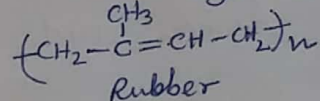 CH₃
(CH₂-C=CH-CH₂)n
Rubber